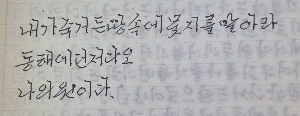 내가죽거든땅속에묻지를말아라
동해에던저다오
나의원이다.